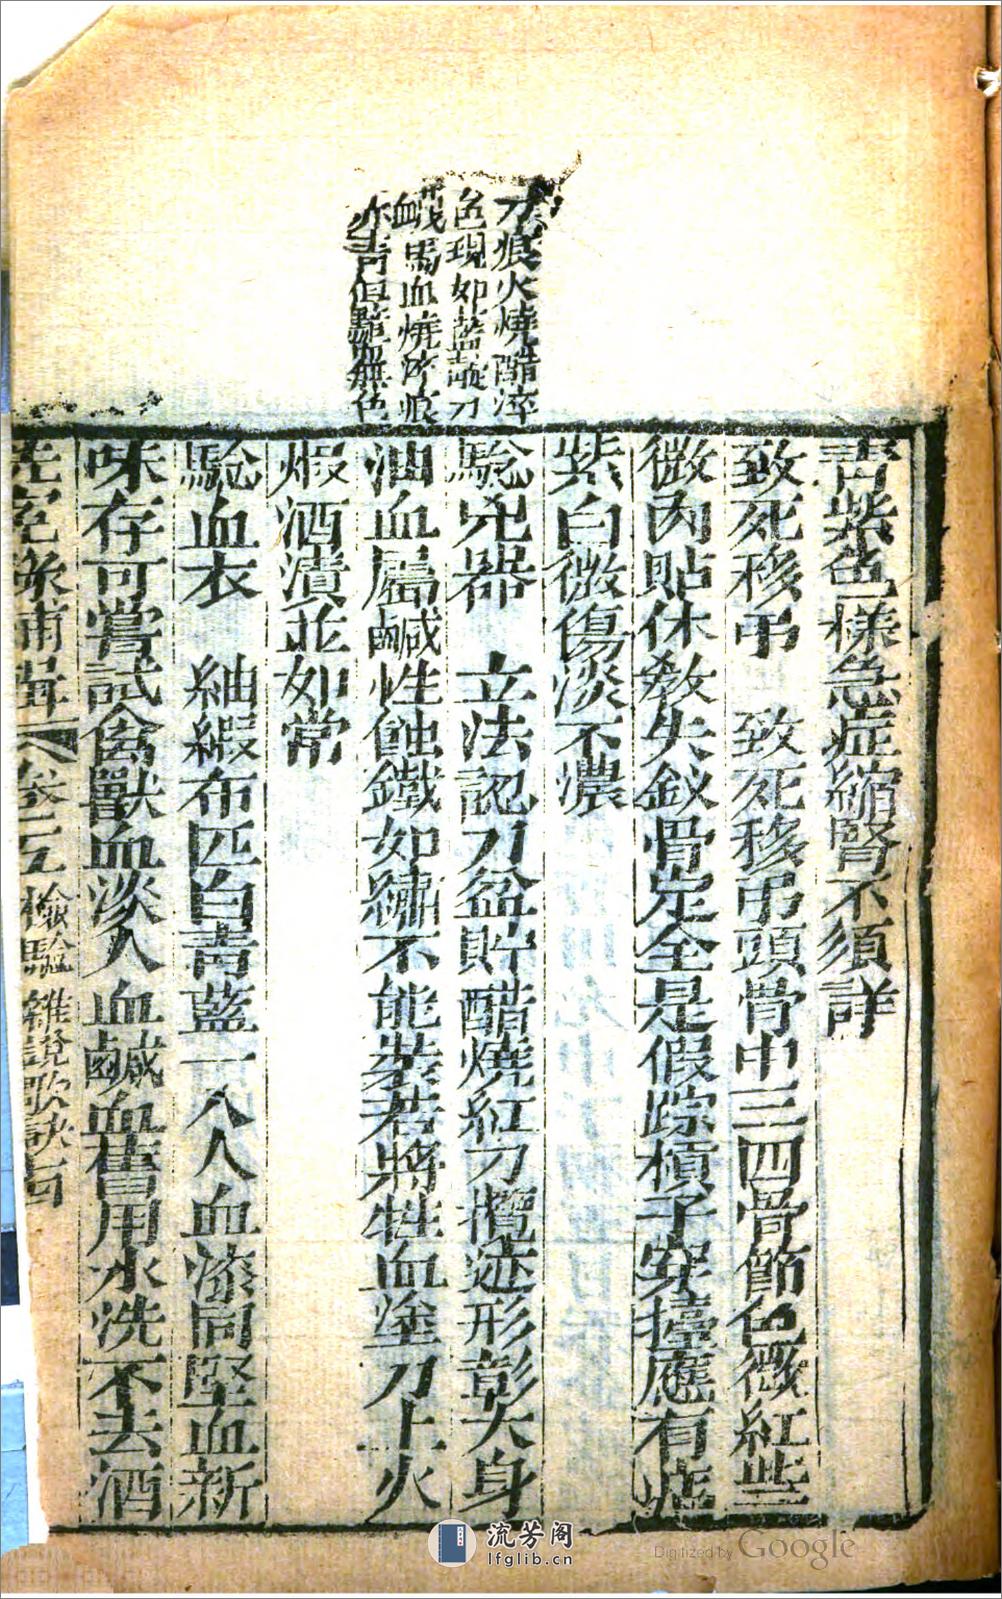 刀痕火燒醋淬
色現如藍靛刀
鹹馬血燒淬痕
亦青但黯無色
青紫色樣急症縮腎不須詳
致死移弔　致死移弔頭骨中三四骨節色微紅些
微肉貼休教失釵骨定全是假踪槓子穿擡應有痣
紫白微傷淡不濃
驗兇器　立法認刀盆貯醋燒紅刀攬迹形彰大身
油血屬鹹性蝕鐵如繡不能裝若將牲血塗刀上火
煆酒漬並如常
驗血衣　紬緞布匹白青藍一入人血漆同堅血新
味存可嘗試禽獸血淡人血鹹血舊用水洗不去酒
洗寃彔補輯 卷二五 檢驗雜說歌訣
流芳阁
lfglib.cn
Digitized by Google